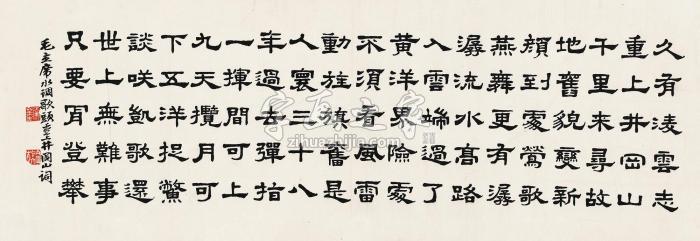 久有淩雲志
重上井岡山
千里来尋故
地舊貌變新
顏到處鶯歌
燕舞更有潺
潺流水高路
入雲端過了
黄洋界險處
不須看風雷
動旌旗奮是
人寰三十八
年過去彈指
一揮間可上
九天攬月可
下五洋捉鱉
談咲凱歌還
世上無難事
只要肎登攀
毛主席水调歌頭重上井岡山词